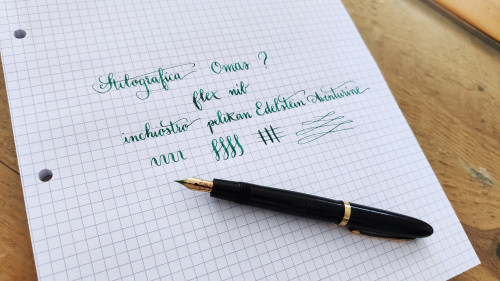 Stilografica Omas ?
flex nib
inchiostro pelikan Edelstein Aventurine